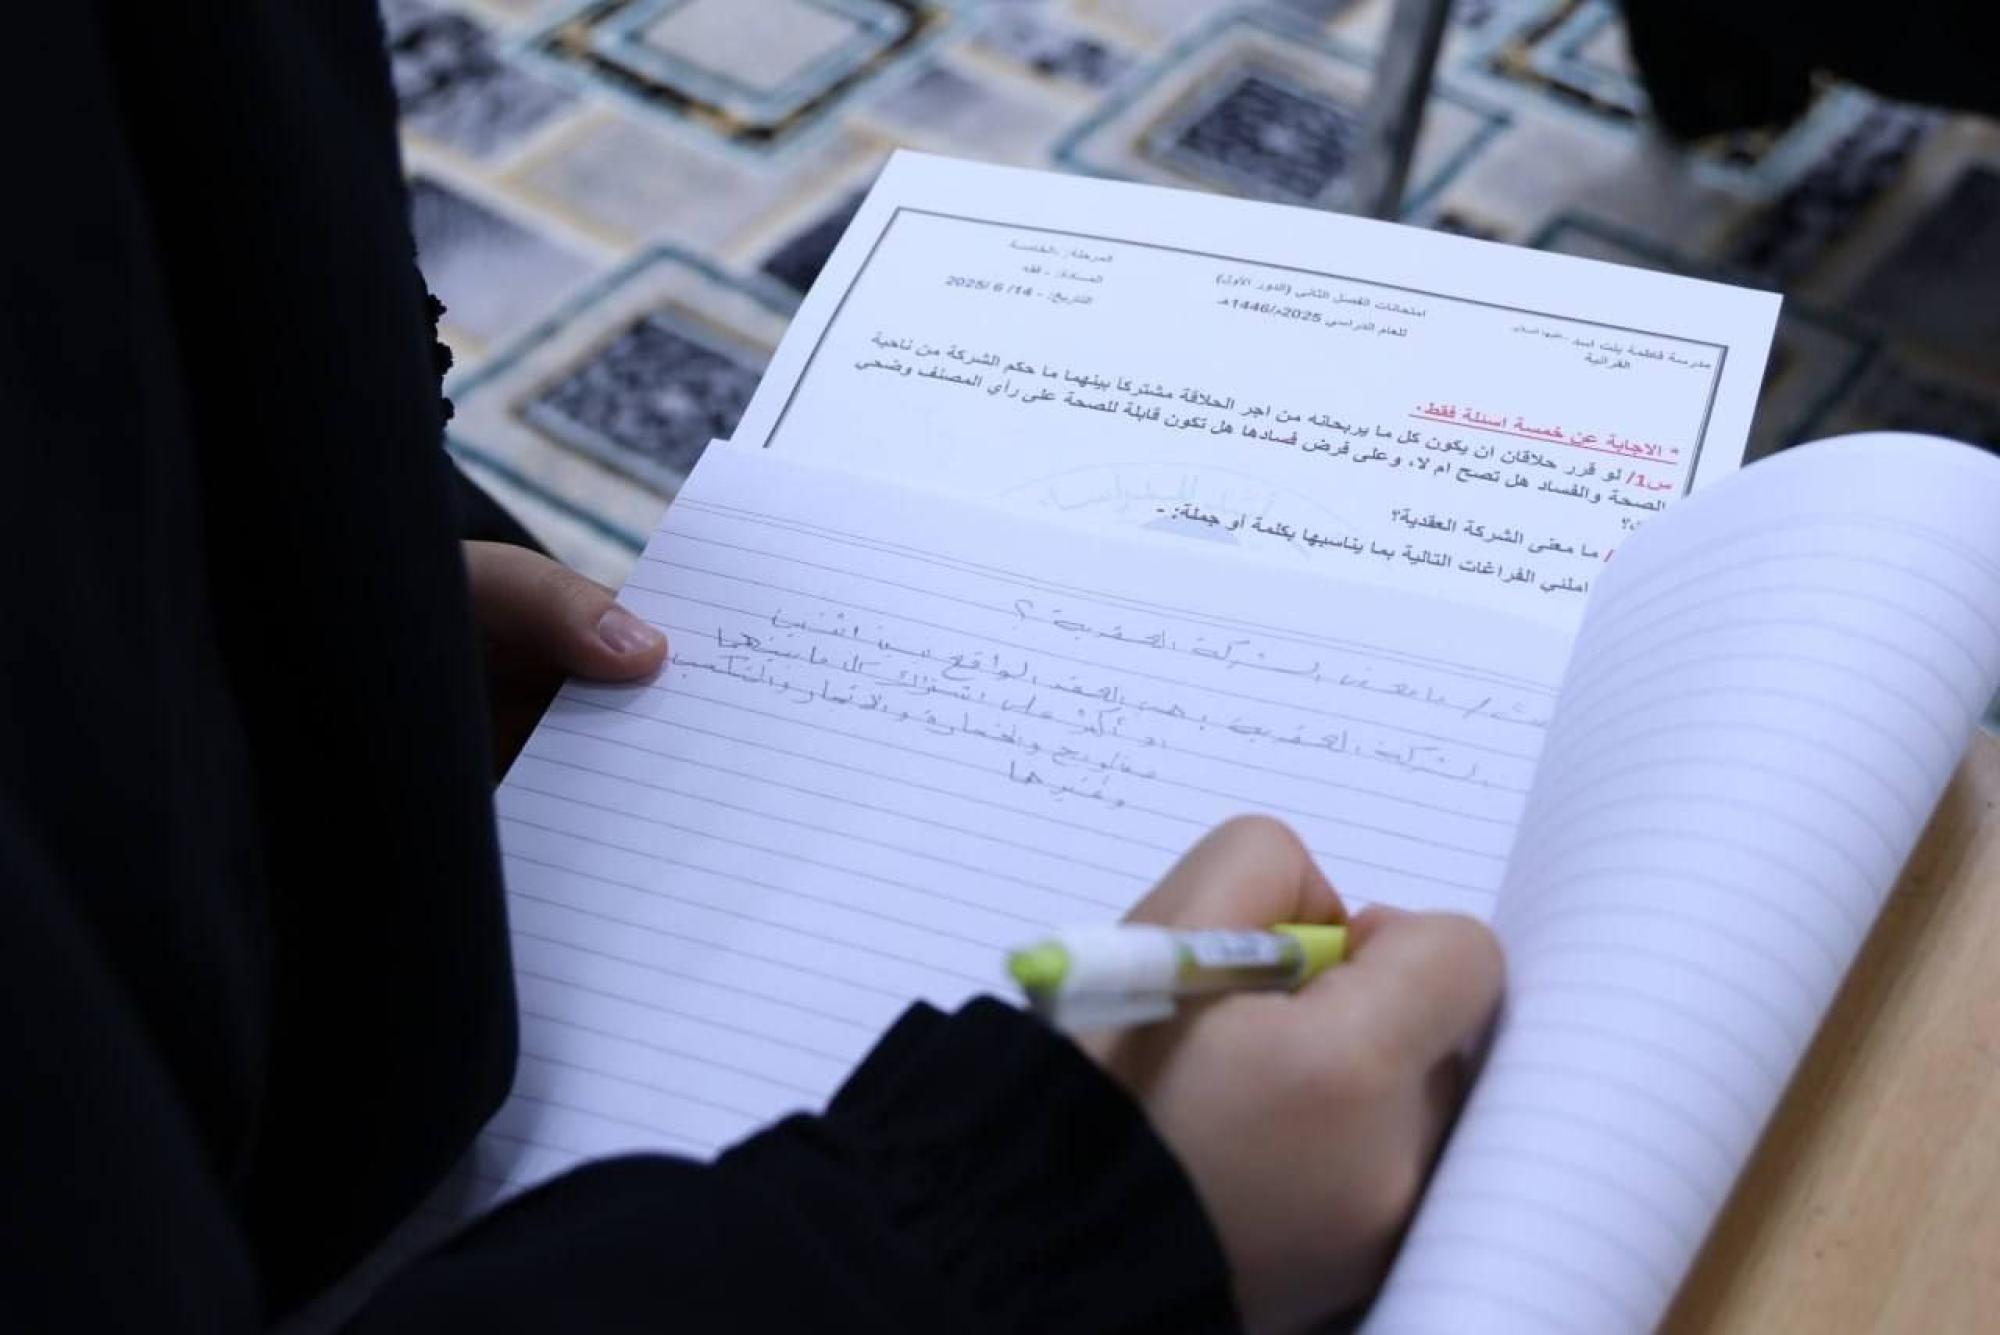 مدرسة فاطمة بنت اسد عليها السلام
القرآنية
امتحانات الفصل الثاني (الدور الأول)
للعام الدراسي 2025م/1446هـ
المرحلة: - الخامسة
المادة: - فقه
التاريخ: - 14/ 6 /2025
* الاجابة عن خمسة اسئلة فقط.
س1/ لو قرر حلاقان ان يكون كل ما يربحانه من اجر الحلاقة مشتركا بينهما ما حكم الشركة من ناحية
الصحة والفساد هل تصح ام لا، وعلى فرض فسادها هل تكون قابلة للصحة على رأي المصنف وضحي
/ ما معنى الشركة العقدية؟
املئي الفراغات التالية بما يناسبها بكلمة أو جملة: -
/ ما معنى الشركة العقدية ؟
الشركة العقدية : هي العقد الواقع بين اثنين
او أكثر على اشتراك كل ما بينهما
والاتجار والتكسب
وغيرها